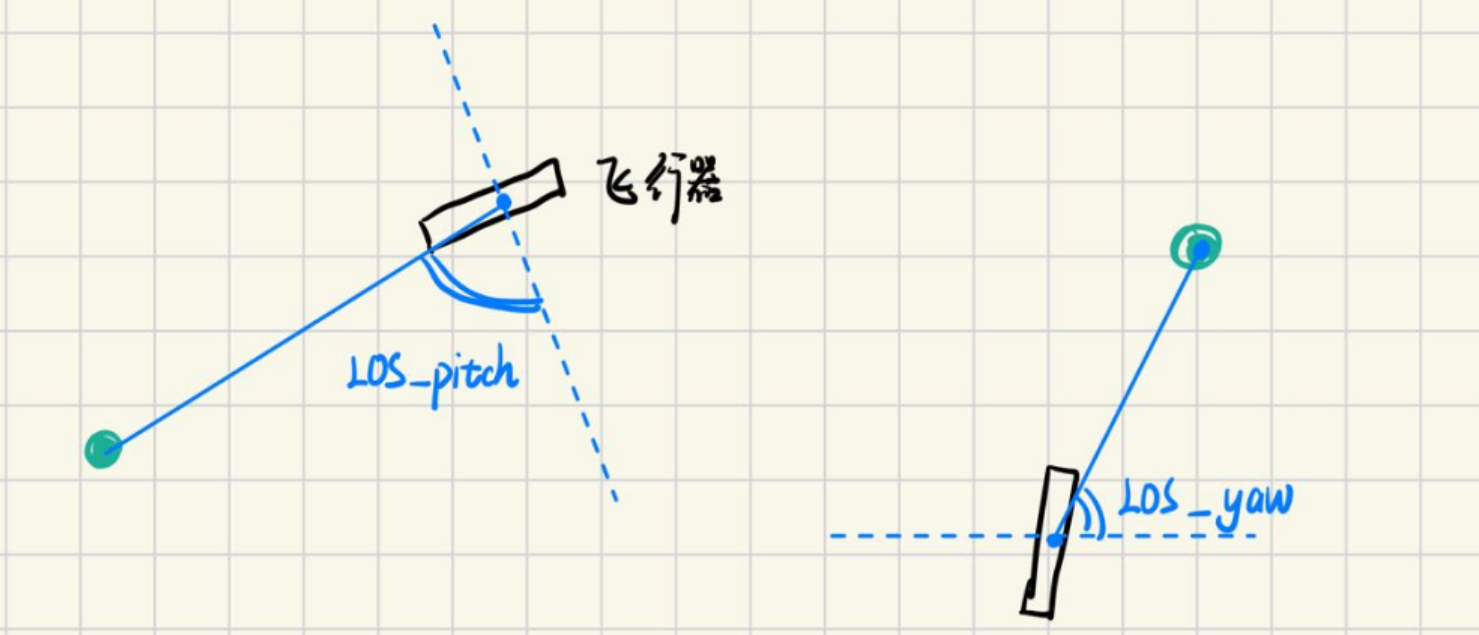 飞行器
LOS_pitch
LOS_yaw